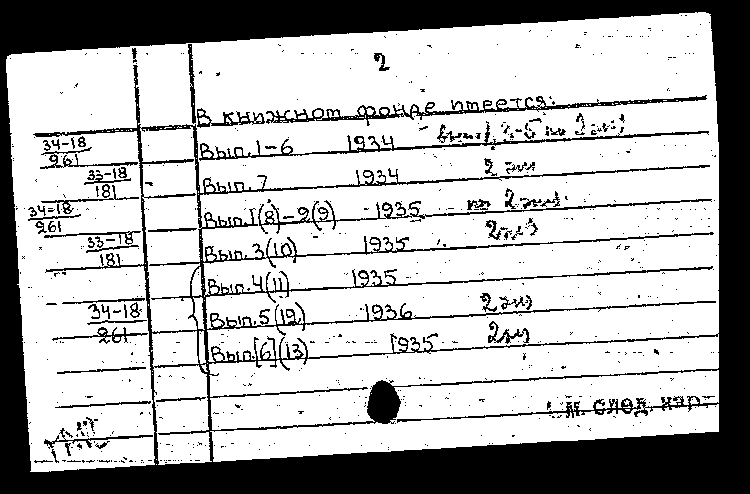 2
В книжном фонде имеется:
34-18/261 Вып. 1-6 1934 - вып. 1, 3-5 по 2 экз
33-18/181 Вып. 7 1934 2 экз
34-18/261 Вып. 1(8)-2(9) 1935 по 2 экз.
33-18/181 Вып. 3(10) 1935 2 экз
Вып. 4(11) 1935
34-18/261 Вып. 5(12) 1936 2 экз
Вып. [6](13) 1935 2 экз
см. след. кар.